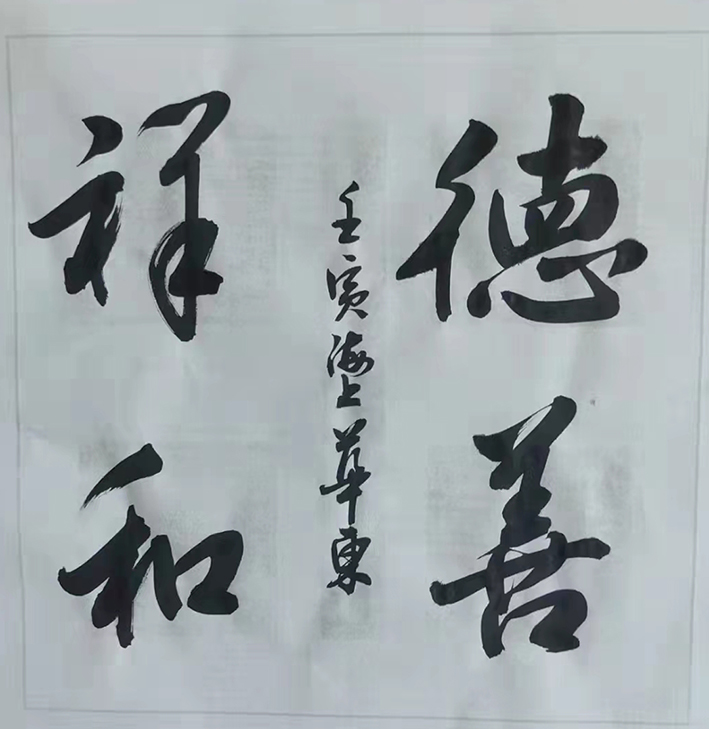 德善
祥和
壬寅海上華東